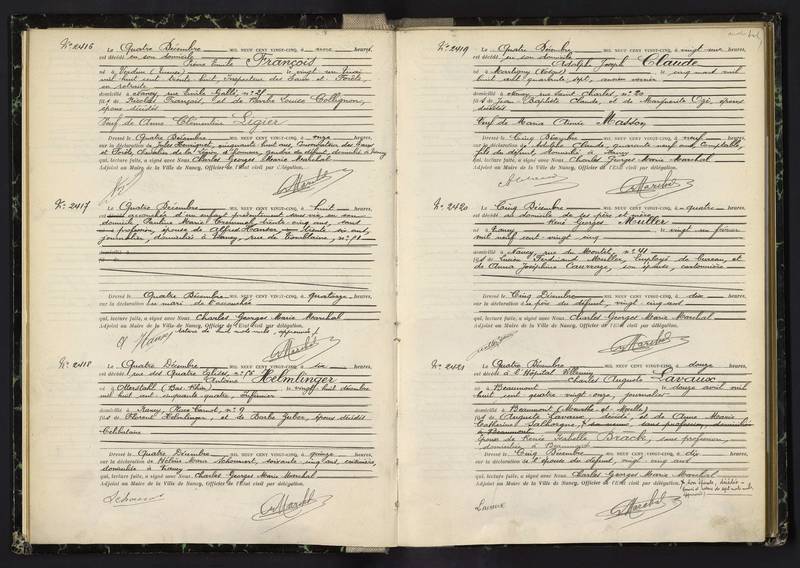 N° 2416
Le Quatre Décembre mil neuf cent vingt-cinq, à onze heures
est décédé en son domicile
Pierre Emile François
né à Verdun (Meuse) le vingt un Mai
mil huit cent trente huit, Inspecteur des Eaux et Forêts,
en retraite
domicilié à Nancy, rue Emile Gallé, n° 25
fils de Nicolas François, et de Barbe Louise Collignon,
époux décédés
Veuf de Anne Clémentine Légier
Dressé le Quatre Décembre mil neuf cent vingt-cinq, à onze heures,
sur la déclaration de Jules cinquante huit ans, Conservateur des Eaux
et Forêts, Chevalier de la Légion d'honneur, gendre du défunt, domicilié à Nancy
qui, lecture faite, a signé avec Nous Charles Georges Marie Maréchal
Adjoint au Maire de la Ville de Nancy, Officier de l'Etat civil par délégation.
N° 2417
Le Quatre Décembre mil neuf cent vingt-cinq, à huit heures,
est accouchée d'un enfant présentement sans vie, en son
domicile, Pauline trente-cinq ans, sans
profession, épouse de Alfred trente six ans,
journalier, domiciliés à Nancy, rue de n° 91
Dressé le Quatre Décembre mil neuf cent vingt-cinq, à quatorze heures,
sur la déclaration du mari de l'accouchée
qui, lecture faite, a signé avec Nous Charles Georges Marie Maréchal
Adjoint au Maire de la Ville de Nancy, Officier de l'Etat civil par délégation.
rature de huit mots nuls, approuvée
N° 2418
Le Quatre Décembre mil neuf cent vingt-cinq, à six heures,
est décédé rue des Quatre Eglises,
Antoine Helmlinger
né à (Bas-Rhin) le vingt huit décembre
mil huit cent cinquante quatre, infirmier
domicilié à Nancy, Place Carnot, n° 9
fils de Florent Helmlinger, et de Barbe Huber, époux décédés
Célibataire
Dressé le Quatre Décembre mil neuf cent vingt-cinq, à quinze heures,
sur la déclaration de soixante cinq ans,
domiciliée à Nancy
qui, lecture faite, a signé avec Nous Charles Georges Marie Maréchal
Adjoint au Maire de la Ville de Nancy, Officier de l'Etat civil par délégation.
N° 2419
Le Quatre Décembre mil neuf cent vingt-cinq, à vingt une heures,
est décédé en son domicile
Adolphe Joseph Claude
né à Martigny (Vosges) le cinq août mil
huit cent quarante sept, ancien
domicilié à Nancy, rue Saint Charles, n° 20
fils de Jean Baptiste Claude, et de Marguerite époux
décédés
Veuf de Maria Aimée Masson
Dressé le Cinq Décembre mil neuf cent vingt-cinq, à neuf heures,
sur la déclaration de Adolphe Claude, quarante neuf ans, Comptable,
fils du défunt, domicilié à Nancy
qui, lecture faite, a signé avec Nous Charles Georges Marie Maréchal
Adjoint au Maire de la Ville de Nancy, Officier de l'Etat civil par délégation.
N° 2420
Le Cinq Décembre mil neuf cent vingt-cinq, à quatre heures,
est décédé au domicile de ses père et mère
René Georges Muller
né à Nancy le vingt un février
mil neuf cent vingt cinq
domicilié à Nancy, rue du Montet, n° 41
fils de Lucien Ferdinand Muller, Employé de bureau, et
de Anna Joséphine Cauvrage, son épouse, cartonnière
Dressé le Cinq Décembre mil neuf cent vingt-cinq, à dix heures,
sur la déclaration du père du défunt, vingt cinq ans
qui, lecture faite, a signé avec Nous Charles Georges Marie Maréchal
Adjoint au Maire de la Ville de Nancy, Officier de l'Etat civil par délégation.
N° 2421
Le Quatre Décembre mil neuf cent vingt-cinq, à douze heures,
est décédé à l'Hôpital Villemin
Charles Auguste Lavaux
né à Beaumont le douze avril mil
huit cent quatre vingt onze, journalier
domicilié à Beaumont (Meurthe et Moselle)
fils de Auguste Lavaux, décédé, et de Anne Marie
Catherine sans profession, domiciliée
à Beaumont
époux de Renée Isabelle Brack, sans profession,
domiciliée à Beaumont
Dressé le Cinq Décembre mil neuf cent vingt-cinq, à dix heures,
sur la déclaration de l'épouse du défunt, vingt cinq ans
qui, lecture faite, a signé avec Nous Charles Georges Marie Maréchal
Adjoint au Maire de la Ville de Nancy, Officier de l'Etat civil par délégation.
Lavaux